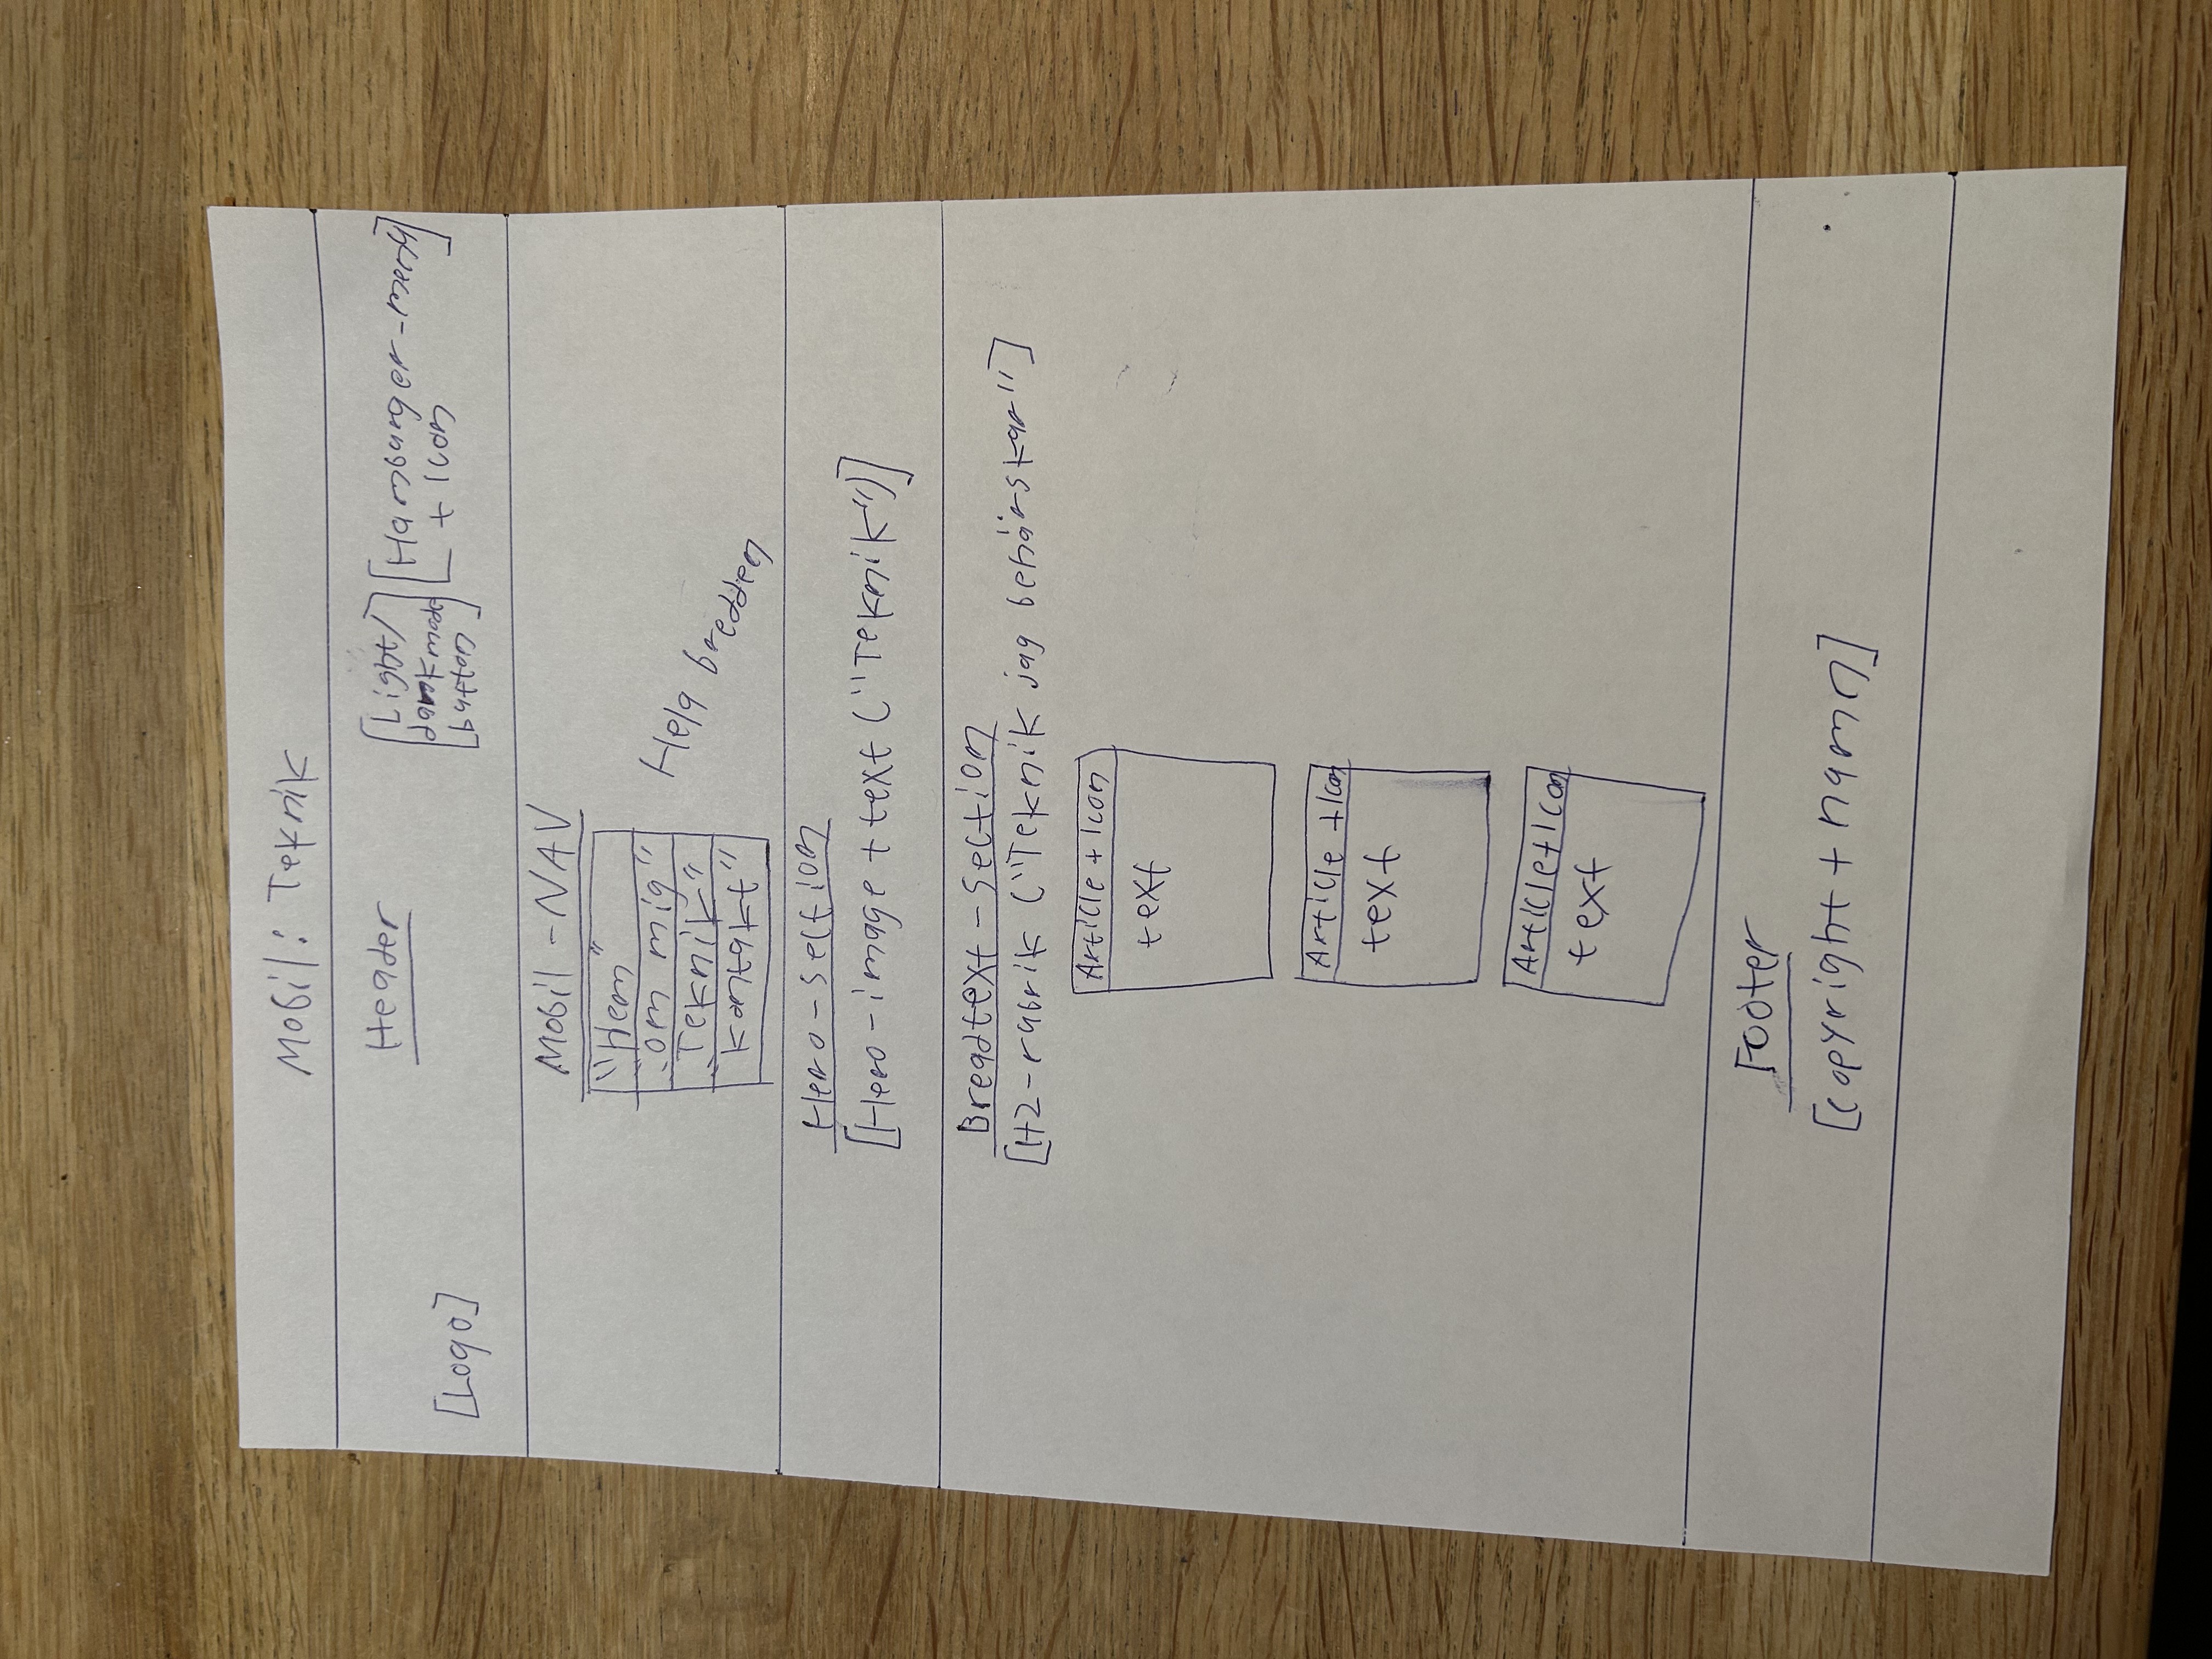 Mobil: Teknik
Header
[Logo]
[Light/
darkmode
button]
[Hamburger-meny
+ Icon]
Mobil-NAV
"Hem"
"om mig"
"Teknik"
"kontakt"
Hela bredden
Hero-section
[Hero-image + text ("Teknik")]
Breadtext-section
[H2-rubrik ("Teknik jag behärskar"]
Article + Icon
text
Article + Icon
text
Article + Icon
text
Footer
[copyright + namn]